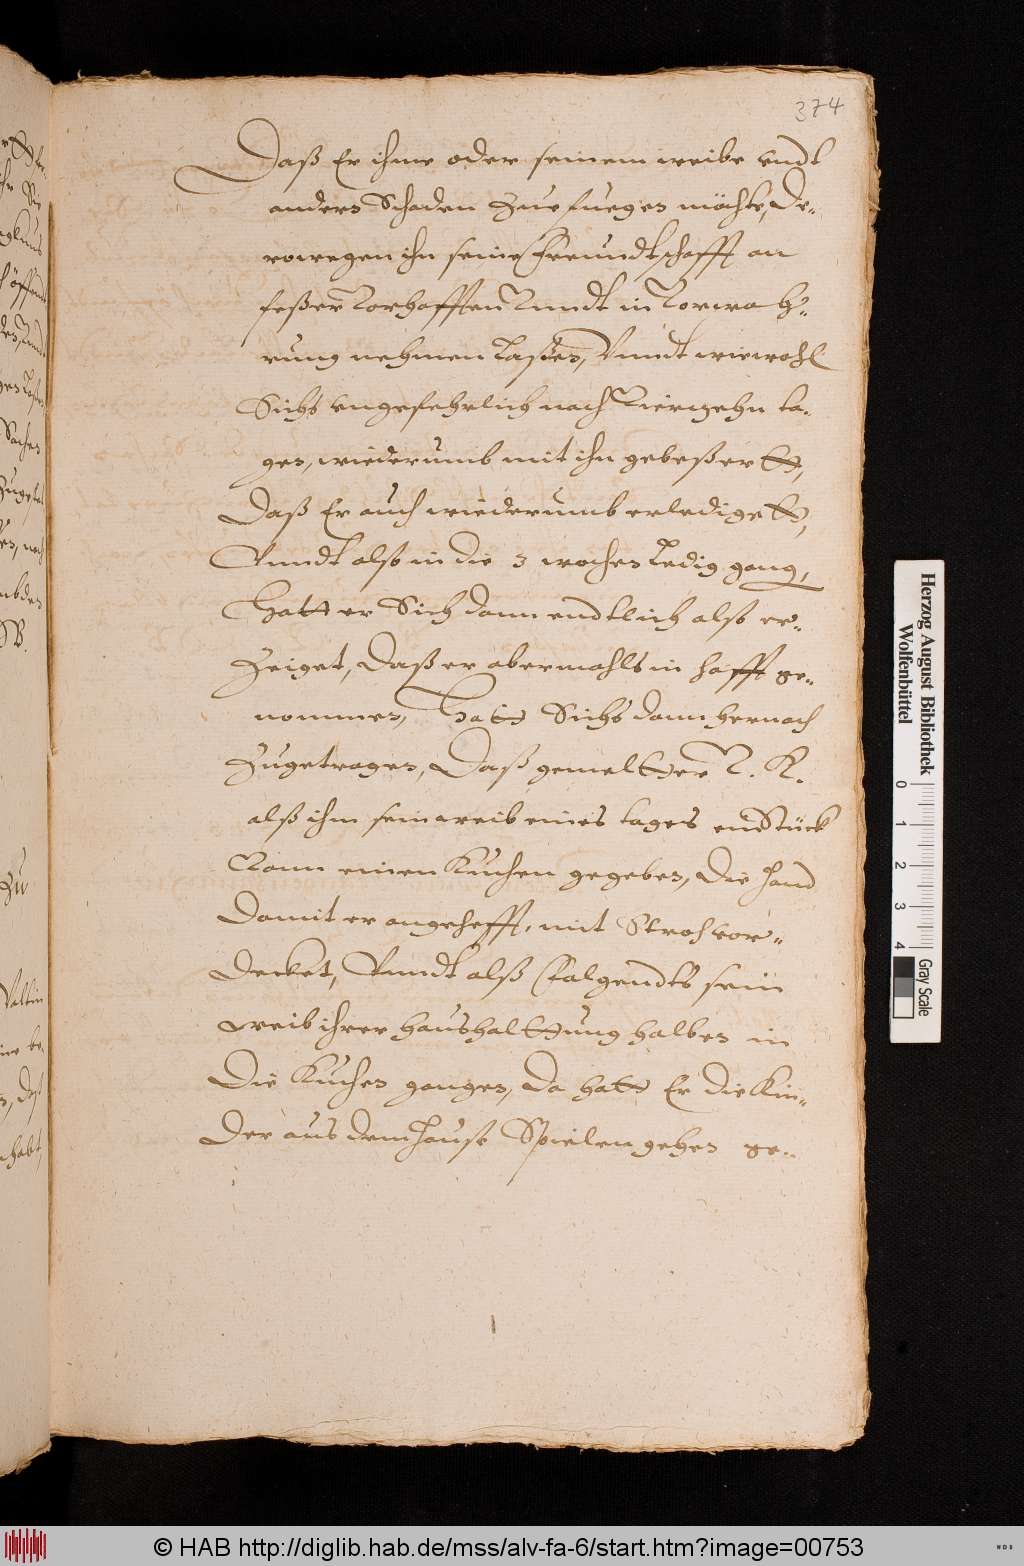 374
Daß Er ihme oder seinem weibe vndt
andern Schaden Zue fuegen möchte, De-
rowegen ihn seine Freundtschafft an
feßer Vorhafften Vnndt in Vorwah-
rung nehmen Laßen, Vnndt wiewohl
Sichs vngefehrlich nach Vierzehn ta-
gen, wiederumb mit ihn gebeßertt,
Daß Er auch wiederumb erledigett,
Vnndt alß in die 3 wochen Ledig gang,
Hatt er Sich dann endtlich alß er-
Zeiget, Daß er abermahls in hafft ge-
nommen, Hatt Sichs dann hernach
Zugetragen, Daß gemeltter V. K.
alß ihm sein weib eines tages ein Stück
Vonn einen Kuchen gegeben, Die hand
Damit er angehefft, mit Stroh vor-
Decket, Vnndt alß Folgendts sein
weib ihrer haushalttung halben in
Die Kuchen gangen, Da hatt Er die Kin-
Der aus dem hause Spielen gehen ge-
Herzog August Bibliothek
Wolfenbüttel
0 1 2 3 4
Gray Scale
© HAB http://diglib.hab.de/mss/alv-fa-6/start.htm?image=00753